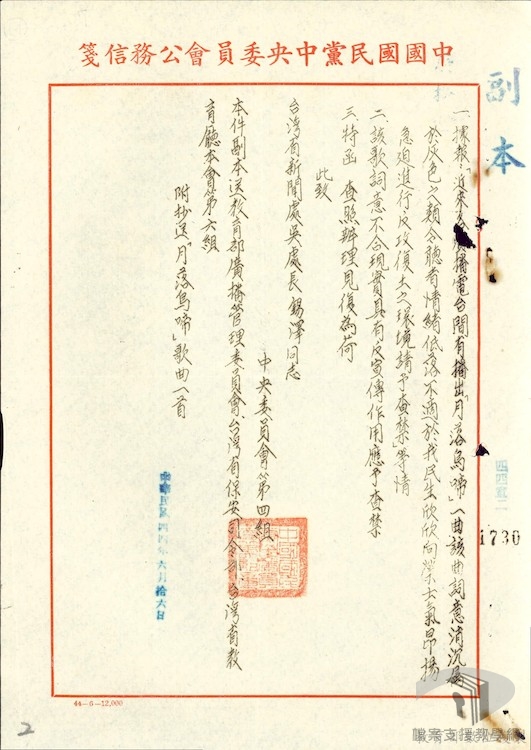 中國國民黨中央委員會公務信箋
副本
一、據報:近來各廣播電台間有播出「月落烏啼」一曲該曲詞意消沉屬
於灰色之類令聽者情緒低落不適於我民生欣欣向榮士氣昂揚
急迫進行反攻復土之環境請予查禁」等情
二、該歌詞意不合現實具有反宣傳作用應予查禁
三、特函 查照辦理見復為荷
此致
台灣省新聞處吳處長錫澤同志
中央委員會第四組
本件副本送教育部廣播管理委員會、台灣省保安司令部、台灣省教
育廳本會第六組
附抄送「月落烏啼」歌曲一首
中華民國四四年六月拾六日
1730
44—6—12,000
2
檔案支援教學網